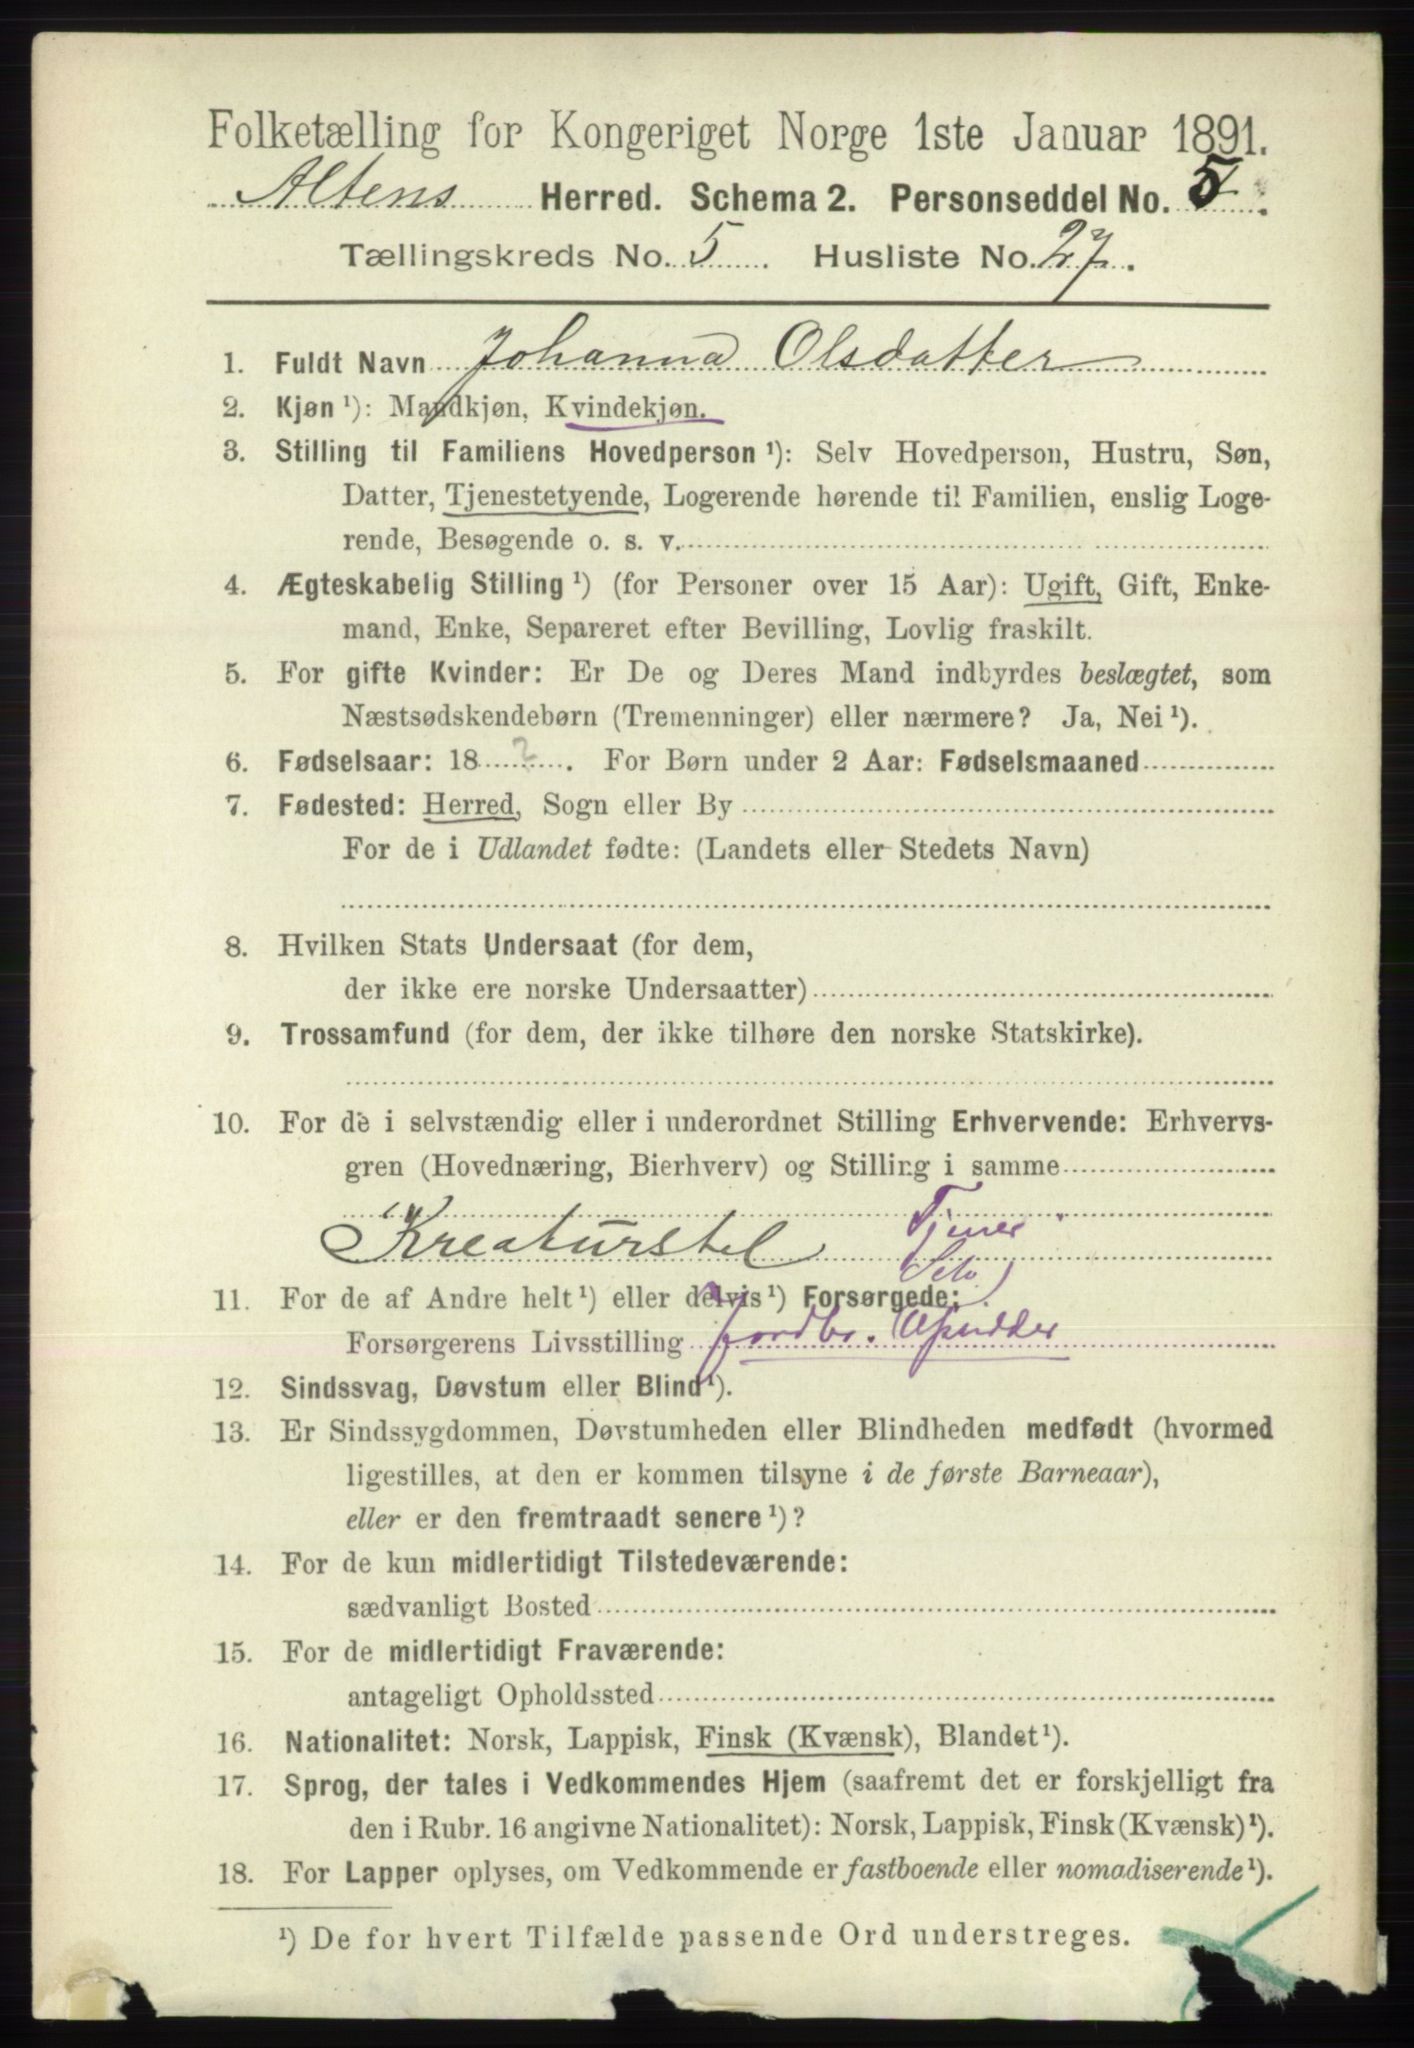 Folketælling for Kongeriget Norge 1ste Januar 1891.
Altens Herred. Schema 2. Personseddel No. 5.
Tællingskreds No. 5. Husliste No. 27.
1. Fuldt Navn Johanna Olsdatter
2. Kjøn ¹): Mandkjøn, Kvindekjøn.
3. Stilling til Familiens Hovedperson ¹): Selv Hovedperson, Hustru, Søn,
Datter, Tjenestetyende, Logerende hørende til Familien, enslig Loge-
rende, Besøgende o. s. v.
4. Ægteskabelig Stilling ¹) (for Personer over 15 Aar): Ugift, Gift, Enke-
mand, Enke, Separeret efter Bevilling, Lovlig fraskilt.
5. For gifte Kvinder: Er De og Deres Mand indbyrdes beslægtet, som
Næstsødskendebørn (Tremenninger) eller nærmere? Ja, Nei ¹).
6. Fødselsaar: 18 ? . For Børn under 2 Aar: Fødselsmaaned
7. Fødested: Herred, Sogn eller By
For de i Udlandet fødte: (Landets eller Stedets Navn)
8. Hvilken Stats Undersaat (for dem,
der ikke ere norske Undersaatter)
9. Trossamfund (for dem, der ikke tilhøre den norske Statskirke).
10. For de i selvstændig eller i underordnet Stilling Erhvervende: Erhvervs-
gren (Hovednæring, Bierhverv) og Stilling i samme
Kreaturstel Tjener
11. For de af Andre helt ¹) eller delvis ¹) Forsørgede:
Forsørgerens Livsstilling Jordbr.
12. Sindssvag, Døvstum eller Blind ¹).
13. Er Sindssygdommen, Døvstumheden eller Blindheden medfødt (hvormed
ligestilles, at den er kommen tilsyne i de første Barneaar),
eller er den fremtraadt senere ¹)?
14. For de kun midlertidigt Tilstedeværende:
sædvanligt Bosted
15. For de midlertidigt Fraværende:
antageligt Opholdssted
16. Nationalitet: Norsk, Lappisk, Finsk (Kvænsk), Blandet ¹).
17. Sprog, der tales i Vedkommendes Hjem (saafremt det er forskjelligt fra
den i Rubr. 16 angivne Nationalitet): Norsk, Lappisk, Finsk (Kvænsk) ¹).
18. For Lapper oplyses, om Vedkommende er fastboende eller nomadiserende ¹).
¹) De for hvert Tilfælde passende Ord understreges.